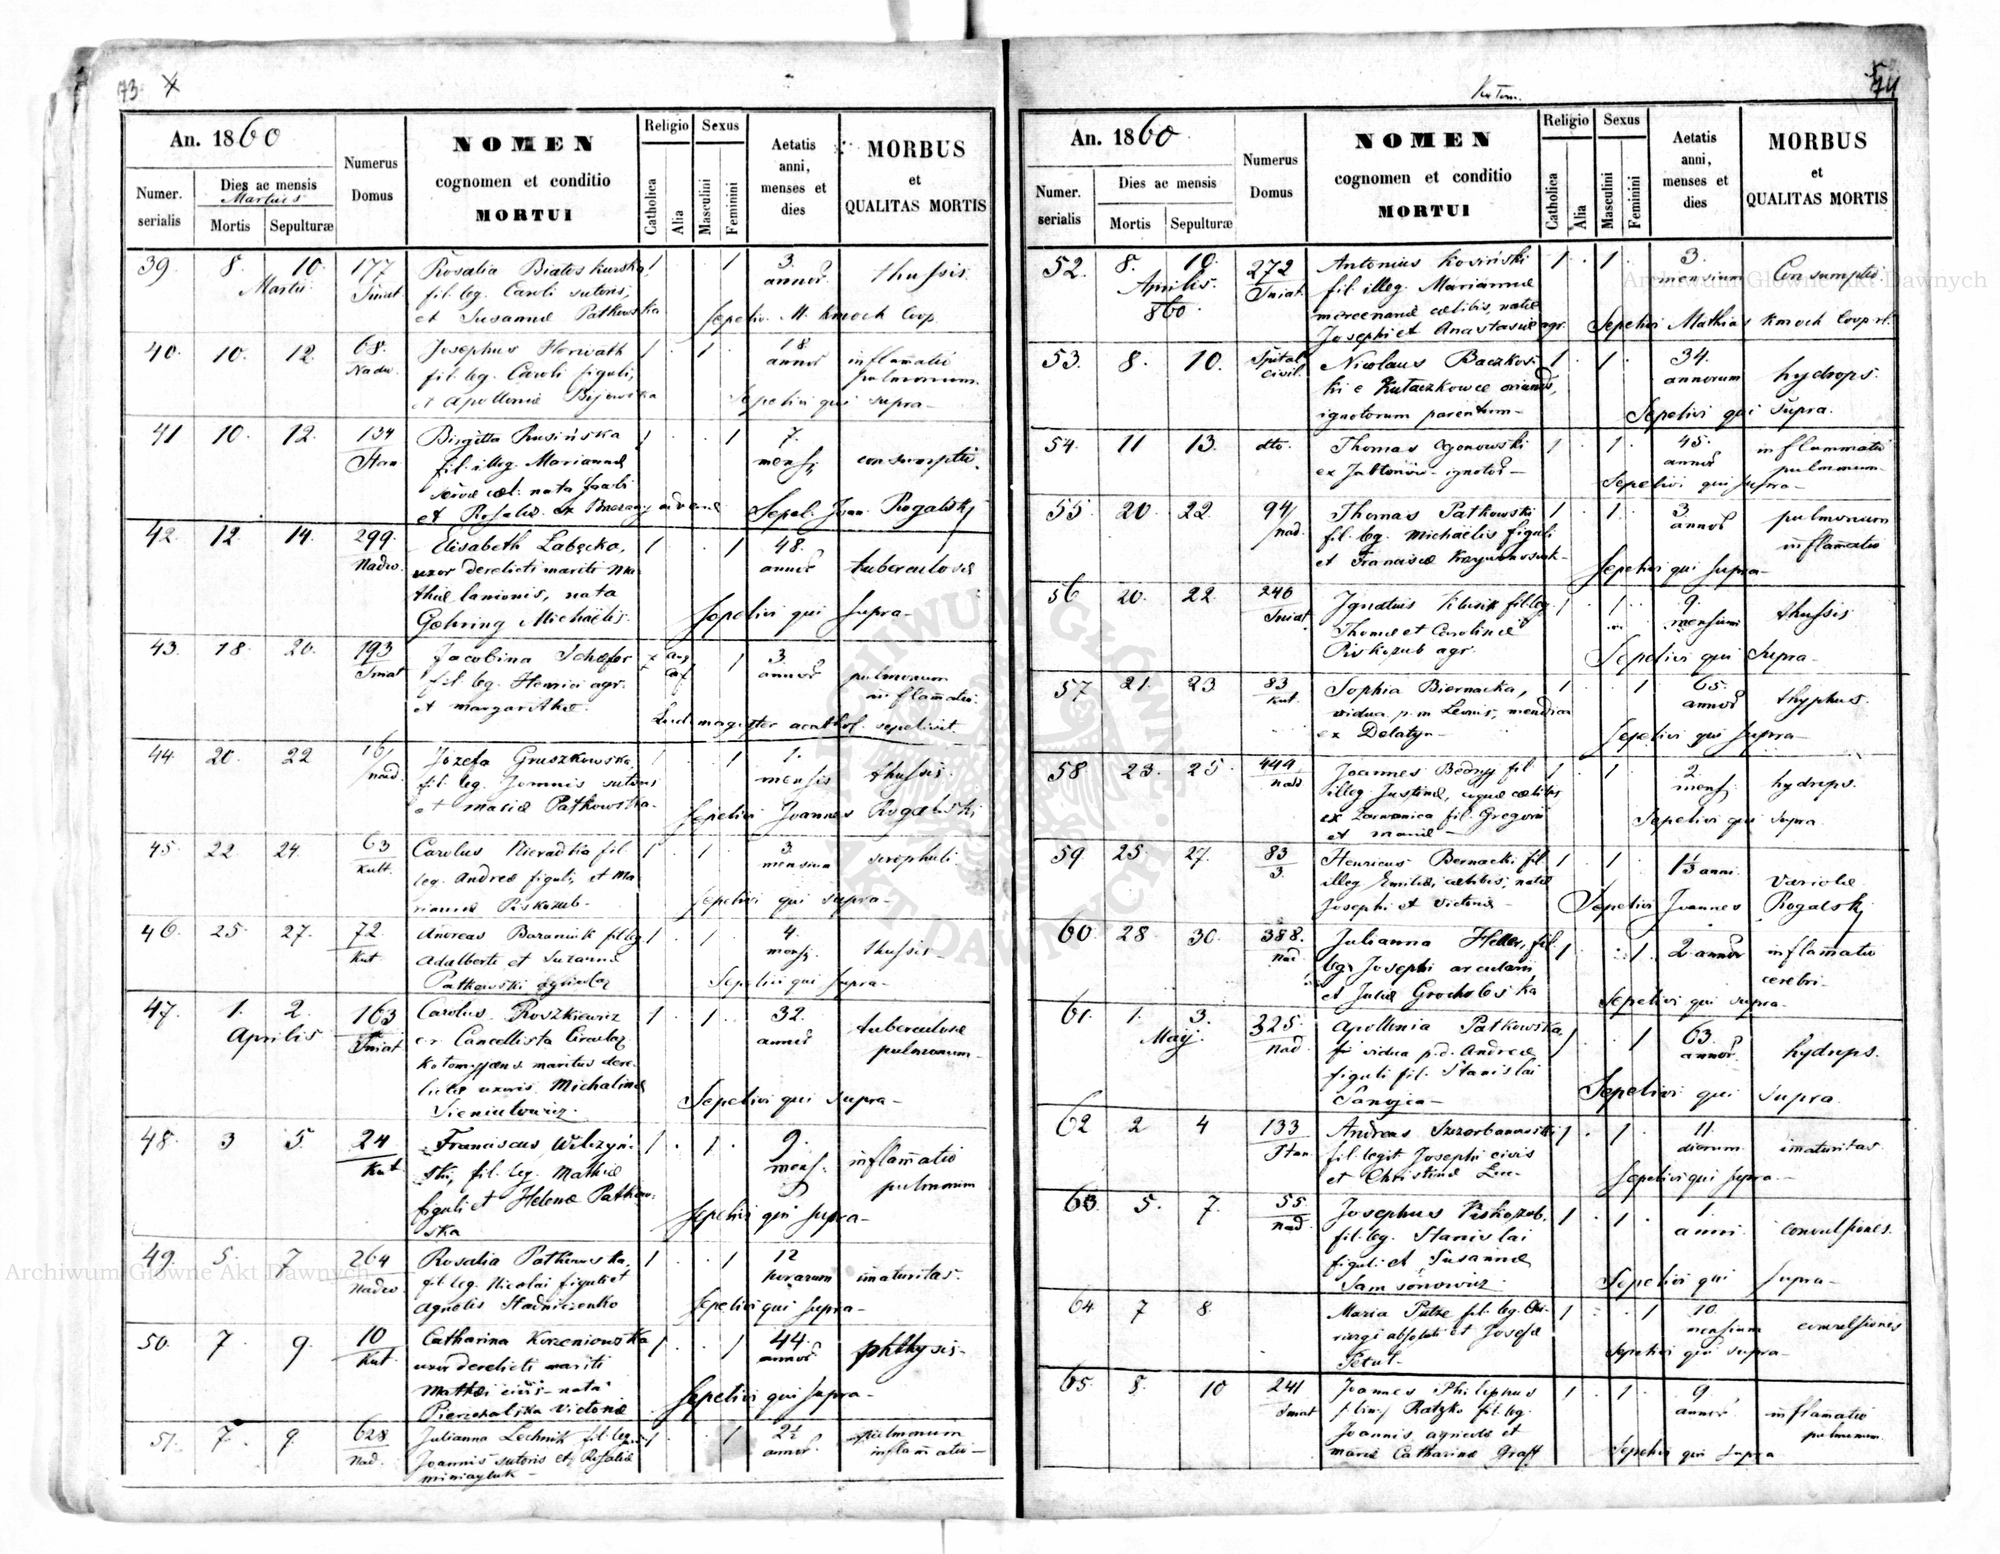 73
An. 1860
Numer. serialis
Dies ac mensis
Martius
Mortis
Sepulturæ
Numerus Domus
NOMEN
cognomen et conditio
MORTUI
Religio
Catholica
Alia
Sexus
Masculini
Feminini
Aetatis anni, menses et dies
MORBUS
et
QUALITAS MORTIS
39. 8. 10. 177 Rosalia 1 1 3. thussis
Martii Sniat fil. leg. Caroli sutoris, annor
et Susannæ Patkowska Sepeliv. M. Kmoch Coop.
40. 10. 12. 68. Josephus Horwath 1 1 18. inflamatio
Nadw. fil. leg. Caroli figuli, annor pulmonum
et Apolloniæ Sepelivi qui supra
41 10. 12. 134 Birgitta Rusińska 1 1 7. consumptio
Stan fil. illeg. Mariannæ mens.
nata
et Rosaliæ Sepel. Joan. Rogalski
42. 12 14. 299. Elisabeth Łabęcka, 1 1 48. tuberculosis
Nadw. uxor derelicti mariti Ma- annor
thiæ lanionis, nata
Gœhring Michaëlis. Sepelivi qui supra
43. 18. 20. 193 Jacobina Schæfer 1 3. pulmonum
Sniat fil. leg. Henrici agr. annor inflamatio
et Margarethæ. Ludi magister sepelivit.
44. 20. 22 161 Józefa Gruszkowska, 1 1 1. thussis.
nad. fil. leg. Joannis sutoris mensis
et Mariæ Patkowska Sepelivi Joannes Rogalski
45. 22 24. 63 Carolus Nieradka fil. 1 1 3. scrophuli
Kutt. leg. Andreæ figuli, et Ma- mensium
riannæ Piskozub Sepelivi qui supra
46. 25. 27. 72. Andreas Baraniuk fil leg 1 1 4. thussis
Kut Adalberti et Suzannæ mens.
Patkowski Sepelivi qui supra
47. 1. 2. 163 Carolus Roszkiewicz 1 1 32. tuberculosæ
Aprilis Sniat c. r. Cancellista annor pulmonum
maritus dere-
lictæ uxoris Michalinæ Sepelivi qui supra
Sieniulowicz.
48. 3 5. 24 Franciscus Wilczyń- 1 1 9. inflamatio
Kut ski, fil. leg. Mathiæ mens. pulmonum
figuli et Helenæ Patkow-
ska Sepelivi qui supra
49. 5. 7 264 Rosalia Patkowska, 1 1 12 imaturitas.
Nadw fil. leg. Nicolai figuli et horarum
Agnetis Stadniczenko Sepelivi qui supra
50. 7 9. 10 Catharina Korzeniowska 1 1 44. phthysis
Kut. uxor derelicti mariti annor
Mathæi civis nata
Victoriæ Sepelivi qui supra
51. 7. 9. 628 Julianna Lechnik fil. leg. 1 1 2½ pulmonum
Nad. Joannis sutoris et Rosaliæ annor inflamatio
74
An. 1860.
Numer. serialis
Dies ac mensis
Mortis
Sepulturæ
Numerus Domus
NOMEN
cognomen et conditio
MORTUI
Religio
Catholica
Alia
Sexus
Masculini
Feminini
Aetatis anni, menses et dies
MORBUS
et
QUALITAS MORTIS
52. 8. 10. 272 Antonius Kosiński 1 1 3. Consumptio
Aprilis. Sniat. fil. illeg. Mariannæ mensium
860. cœlibis, natæ
Josephi et Anastasiæ agr. Sepelivi Mathias Kmoch Coop.
53. 8. 10. Spital civil. Nicolaus Baczkow- 1 1 34. hydrops.
ski e annorum
ignotorum parentum Sepelivi qui supra.
54. 11 13. dto. Thomas 1 1 45. inflammatio
ex Jabłonow ignotor annor pulmonum
Sepelivi qui supra
55. 20 22. 94 Thomas Patkowski 1 1 3. pulmonum
nad. fil. leg. Michaëlis figuli annor inflamatio
et Franciscæ Sepelivi qui supra
56 20. 22. 246 Ignatius Klusik fil. leg. 1 1 9. thussis
Sniat Thomæ et Carolinæ mensium
Piskozub agr. Sepelivi qui supra
57 21. 23. 83 Sophia Biernacka, 1 1 65. thyphus.
Kut. vidua p. m. mendica annor
ex Delatyn Sepelivi qui supra
58 23. 25. 449 Joannes fil. 1 1 2. hydrops.
Nad illeg. Justinæ, cœlibis mens.
ex fil. Gregorii
et Mariæ Sepelivi qui supra
59. 25. 27. 83 Henricus Bernacki fil. 1 1 1⅓ anni. Variolæ
3. illeg Emiliæ, cœlibis, natæ
Josephi et Victoriæ Sepelivi Joannes Rogalski
60. 28 30. 388. Julianna Heller, fil. 1 1 2 annor inflamatio
nad. leg. Josephi arcularii cerebri
et Juliæ Grocholska Sepelivi qui supra
61. 1. 3. 325. Apollonia Patkowska 1 1 63. hydrops.
Maij. Nad. vidua p. d. Andreæ annor.
figuli fil. Stanislai
Sanojca Sepelivi qui supra
62 2 4 133 Andreas Szczerbanowski 1 1 11. imaturitas.
Stan. fil. legit Josephi civis dierum
et Christinæ Sepelivi qui supra
63 5. 7. 55. Josephus Piskozub, 1 1 1. convulsiones.
nad. fil. leg. Stanislai anni.
figuli et Susannæ
Samsonowicz Sepelivi qui supra
64. 7 8. Maria Putze fil. leg. Chi- 1 1 10. convulsiones
rurgi absoluti et Josefæ mensium
Petul Sepelivi qui supra
65. 8. 10 241 Joannes Philiphus 1 1 9. inflamatio
Sniat Ratzko fil. leg. annor pulmonum
Joannis, agricolæ et
Mariæ Catharinæ Graff Sepelivi qui supra
Archiwum Główne Akt Dawnych
Archiwum Główne Akt Dawnych
ARCHIWUM GŁÓWNE AKT DAWNYCH